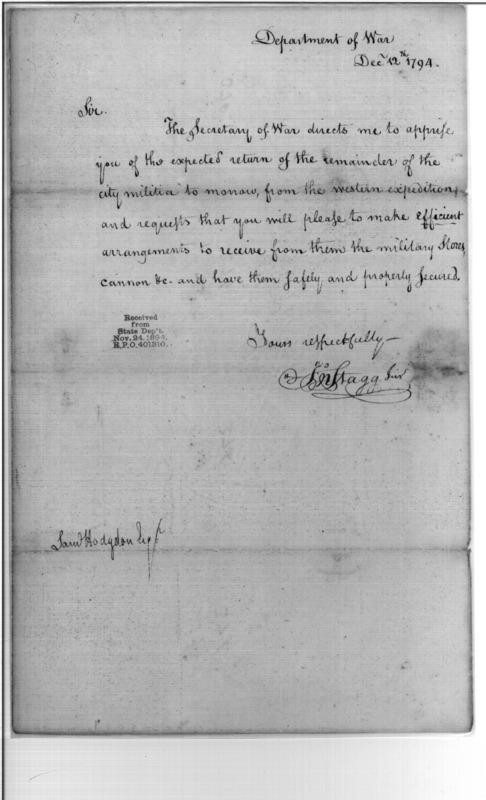 Department of War
Decr 12th 1794.
Sir.
The Secretary of War directs me to apprise
you of the expected return of the remainder of the
city militia to morrow, from the western expedition,
and requests that you will please to make efficient
arrangements to receive from them the military Stores,
cannon &c. and have them safely and properly secured.
Received
from
State Dep't.
Nov. 24, 1894.
R.P.O. 401310.
Yours respectfully—
Jno Stagg Junr
Saml Hodgdon Esqr